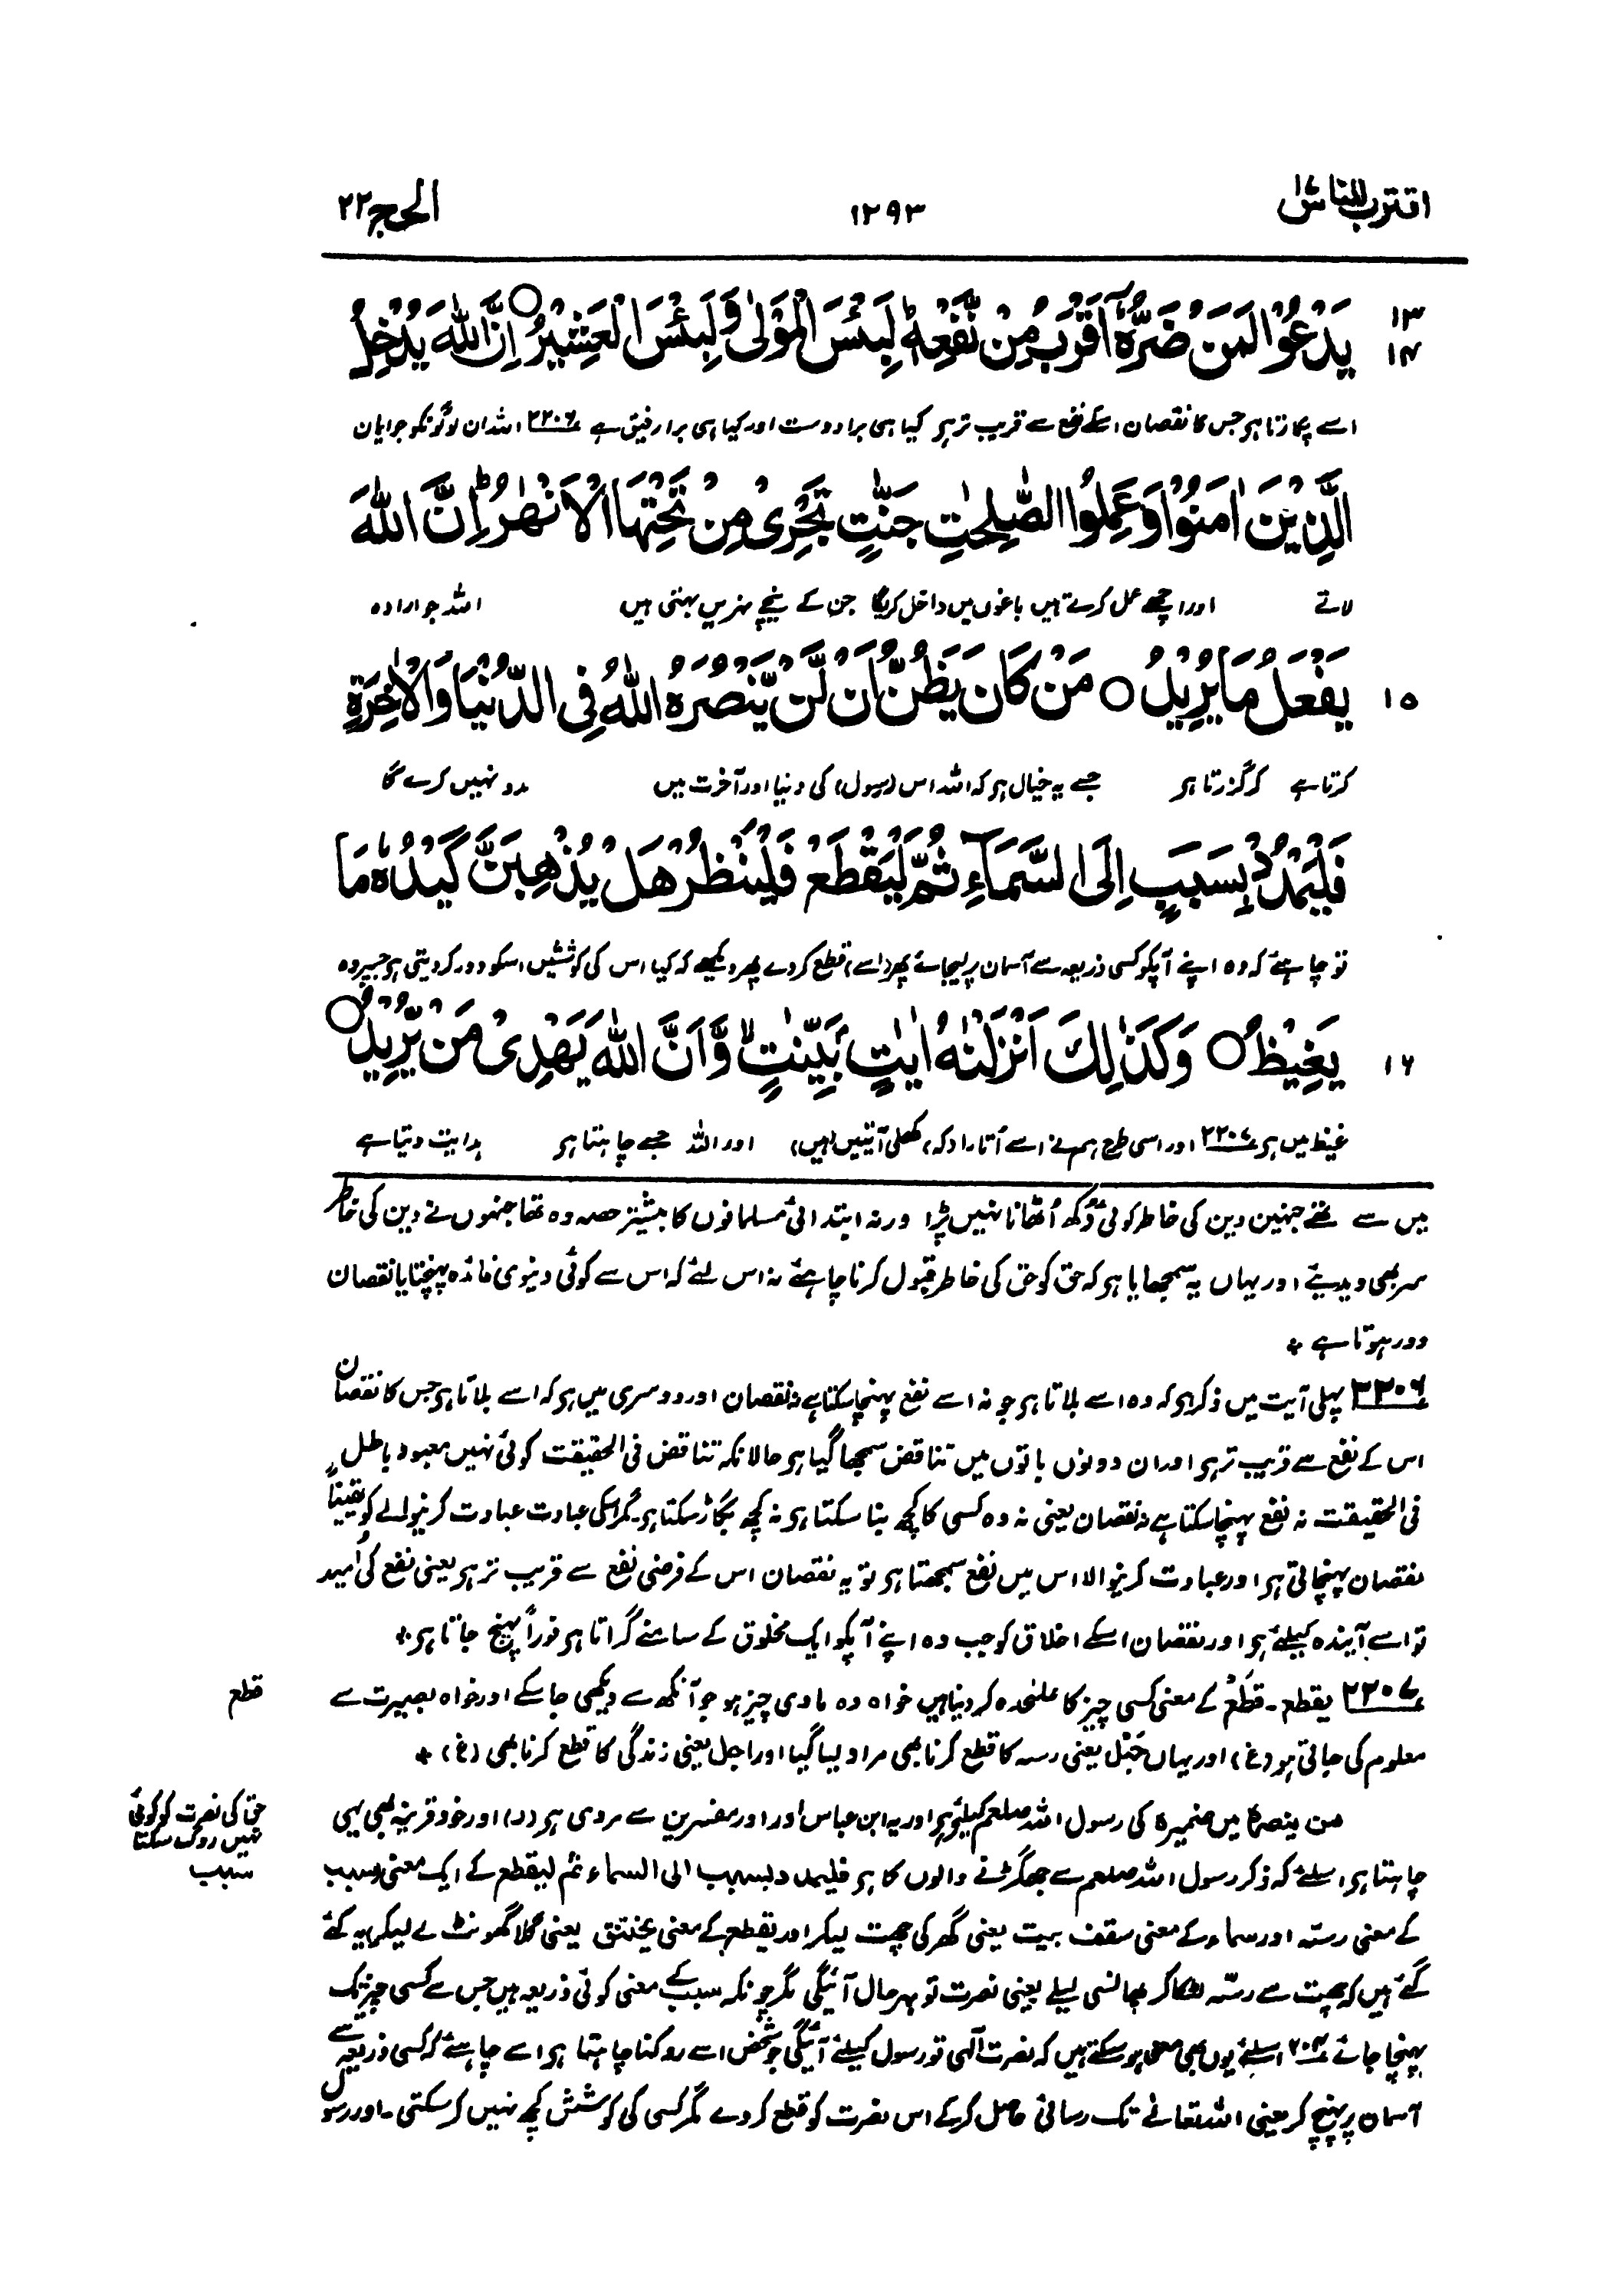 اقترب للناس ۱۷
۱۲۹۳
الحج ۲۲
۱۳
۱۴
يَدْعُوْا لَمَنْ ضَرُّهٗٓ اَقْرَبُ مِنْ نَّفْعِهٖ ؕ لَبِئْسَ الْمَوْلٰى وَ لَبِئْسَ الْعَشِيْرُ ○ اِنَّ اللّٰهَ يُدْخِلُ
اسے پکارتا ہو جس کا نقصان اسکے نفع سے قریب تر ہو کیا ہی برا دوست اور کیا ہی برا رفیق ہے ۲۲۰۶ اللہ ان لوگونکو جو ایمان
الَّذِيْنَ اٰمَنُوْا وَ عَمِلُوا الصّٰلِحٰتِ جَنّٰتٍ تَجْرِيْ مِنْ تَحْتِهَا الْاَنْهٰرُ ؕ اِنَّ اللّٰهَ
لاتے اور اچھے عمل کرتے ہیں باغوں میں داخل کریگا جن کے نیچے نہریں بہتی ہیں اللہ جو ارادہ
۱۵
يَفْعَلُ مَا يُرِيْدُ ○ مَنْ كَانَ يَظُنُّ اَنْ لَّنْ يَّنْصُرَهُ اللّٰهُ فِي الدُّنْيَا وَ الْاٰخِرَةِ
کرتا ہے کر گزرتا ہو جسے یہ خیال ہو کہ اللہ اس (رسول) کی دنیا اور آخرت میں مدد نہیں کرے گا
فَلْيَمْدُدْ بِسَبَبٍ اِلَى السَّمَآءِ ثُمَّ لْيَقْطَعْ فَلْيَنْظُرْ هَلْ يُذْهِبَنَّ كَيْدُهٗ مَا
تو چاہیئے کہ وہ اپنے آپکو کسی ذریعہ سے آسمان پر لیجائے پھر (اسے) قطع کر دے پھر دیکھے کہ کیا اس کی کوششیں اسکو دور کر دیتی ہو جسپر وہ
۱۶
يَغِيْظُ ○ وَ كَذٰلِكَ اَنْزَلْنٰهُ اٰيٰتٍۭ بَيِّنٰتٍ ۙ وَّ اَنَّ اللّٰهَ يَهْدِيْ مَنْ يُّرِيْدُ ○
غیظ میں ہو ۲۲۰۷ اور اسی طرح ہم نے اسے اُتارا (کہ) کھلی آیتیں (ہیں) اور اللہ جسے چاہتا ہو ہدایت دیتا ہے
میں سے تھے جنہین دین کی خاطر کوئی دُکھ اُٹھانا نہیں پڑا ورنہ ابتدائی مسلمانوں کا بیشتر حصہ وہ تھا جنہوں نے دین کی خاطر
سر بھی دیدیئے اور یہاں یہ سمجھایا ہو کہ حق کو حق کی خاطر قبول کرنا چاہئے نہ اس لئے کہ اس سے کوئی دنیوی فائدہ پہنچتا یا نقصان
دور ہوتا ہے ٭
۲۲۰۶ پہلی آیت میں ذکر ہو کہ وہ اسے بلاتا ہو جو نہ اسے نفع پہنچا سکتا ہے نہ نقصان اور دوسری میں ہو کہ اسے بلاتا ہو جس کا نقصان
اس کے نفع سے قریب تر ہو اور ان دونوں باتوں میں تناقض سمجھا گیا ہو حالانکہ تناقض فی الحقیقت کوئی نہیں معبود باطل
فی الحقیقت نہ نفع پہنچا سکتا ہے نہ نقصان یعنی نہ وہ کسی کا کچھ بنا سکتا ہو نہ کچھ بگاڑ سکتا ہو۔ مگر اسکی عبادت عبادت کرنیوالے کو یقیناً
نقصان پہنچاتی ہو اور عبادت کرنیوالا اس میں نفع سمجھتا ہو تو یہ نقصان اس کے فرضی نفع سے قریب تر ہو یعنی نفع کی اُمید
تو اسے آیندہ کیلئے ہو اور نقصان اسکے اخلاق کو جب وہ اپنے آپکو ایک مخلوق کے سامنے گراتا ہو فوراً پہنچ جاتا ہو٭
۲۲۰۷ یقطع۔ قَطْعٌ کے معنی کسی چیز کا علیٰحدہ کر دینا ہیں خواہ وہ مادی چیز ہو جو آنکھ سے دیکھی جاسکے اور خواہ بصیرت سے
قطع
معلوم کی جاتی ہو (غ) اور یہاں حَبْل یعنی رسہ کا قطع کرنا بھی مراد لیا گیا اور اجل یعنی زندگی کا قطع کرنا بھی (غ) ٭
من ینصرہ میں ضمیر ہ کی رسول اللہ صلعم کیلئے ہو اور یہ ابن عباس اور اور مفسرین سے مروی ہو (د) اور خود قرینہ بھی یہی
حق کی نصرت کو کوئی
نہیں روک سکتا
سبب
چاہتا ہو اسلئے کہ ذکر رسول اللہ صلعم سے جھگڑنے والوں کا ہو فلیمدد بسبب الی السماء ثم لیقطع کے ایک معنی سبب
کے معنی رستہ اور سماء کے معنی سقف بیت یعنی گھر کی چھت لیکر اور یقطع کے معنی یختنق یعنی گلا گھونٹ لے لیکر یہ کئے
گئے ہیں کہ چھت سے رستہ لٹکا کر پھانسی لیلے یعنی نصرت تو بہر حال آئیگی مگر چونکہ سبب کے معنی کوئی ذریعہ ہیں جس سے کسی چیز تک
پہنچا جائے اسلئے یوں بھی معنے ہو سکتے ہیں کہ نصرت الٰہی تو رسول کیلئے آئیگی جو شخص اسے روکنا چاہتا ہو اسے چاہئے کہ کسی ذریعہ سے
آسمان پر پہنچ کر یعنی اللہ تعالیٰ تک رسائی حاصل کر کے اس نصرت کو قطع کر دے مگر کسی کی کوشش کچھ نہیں کر سکتی۔ اور رسول